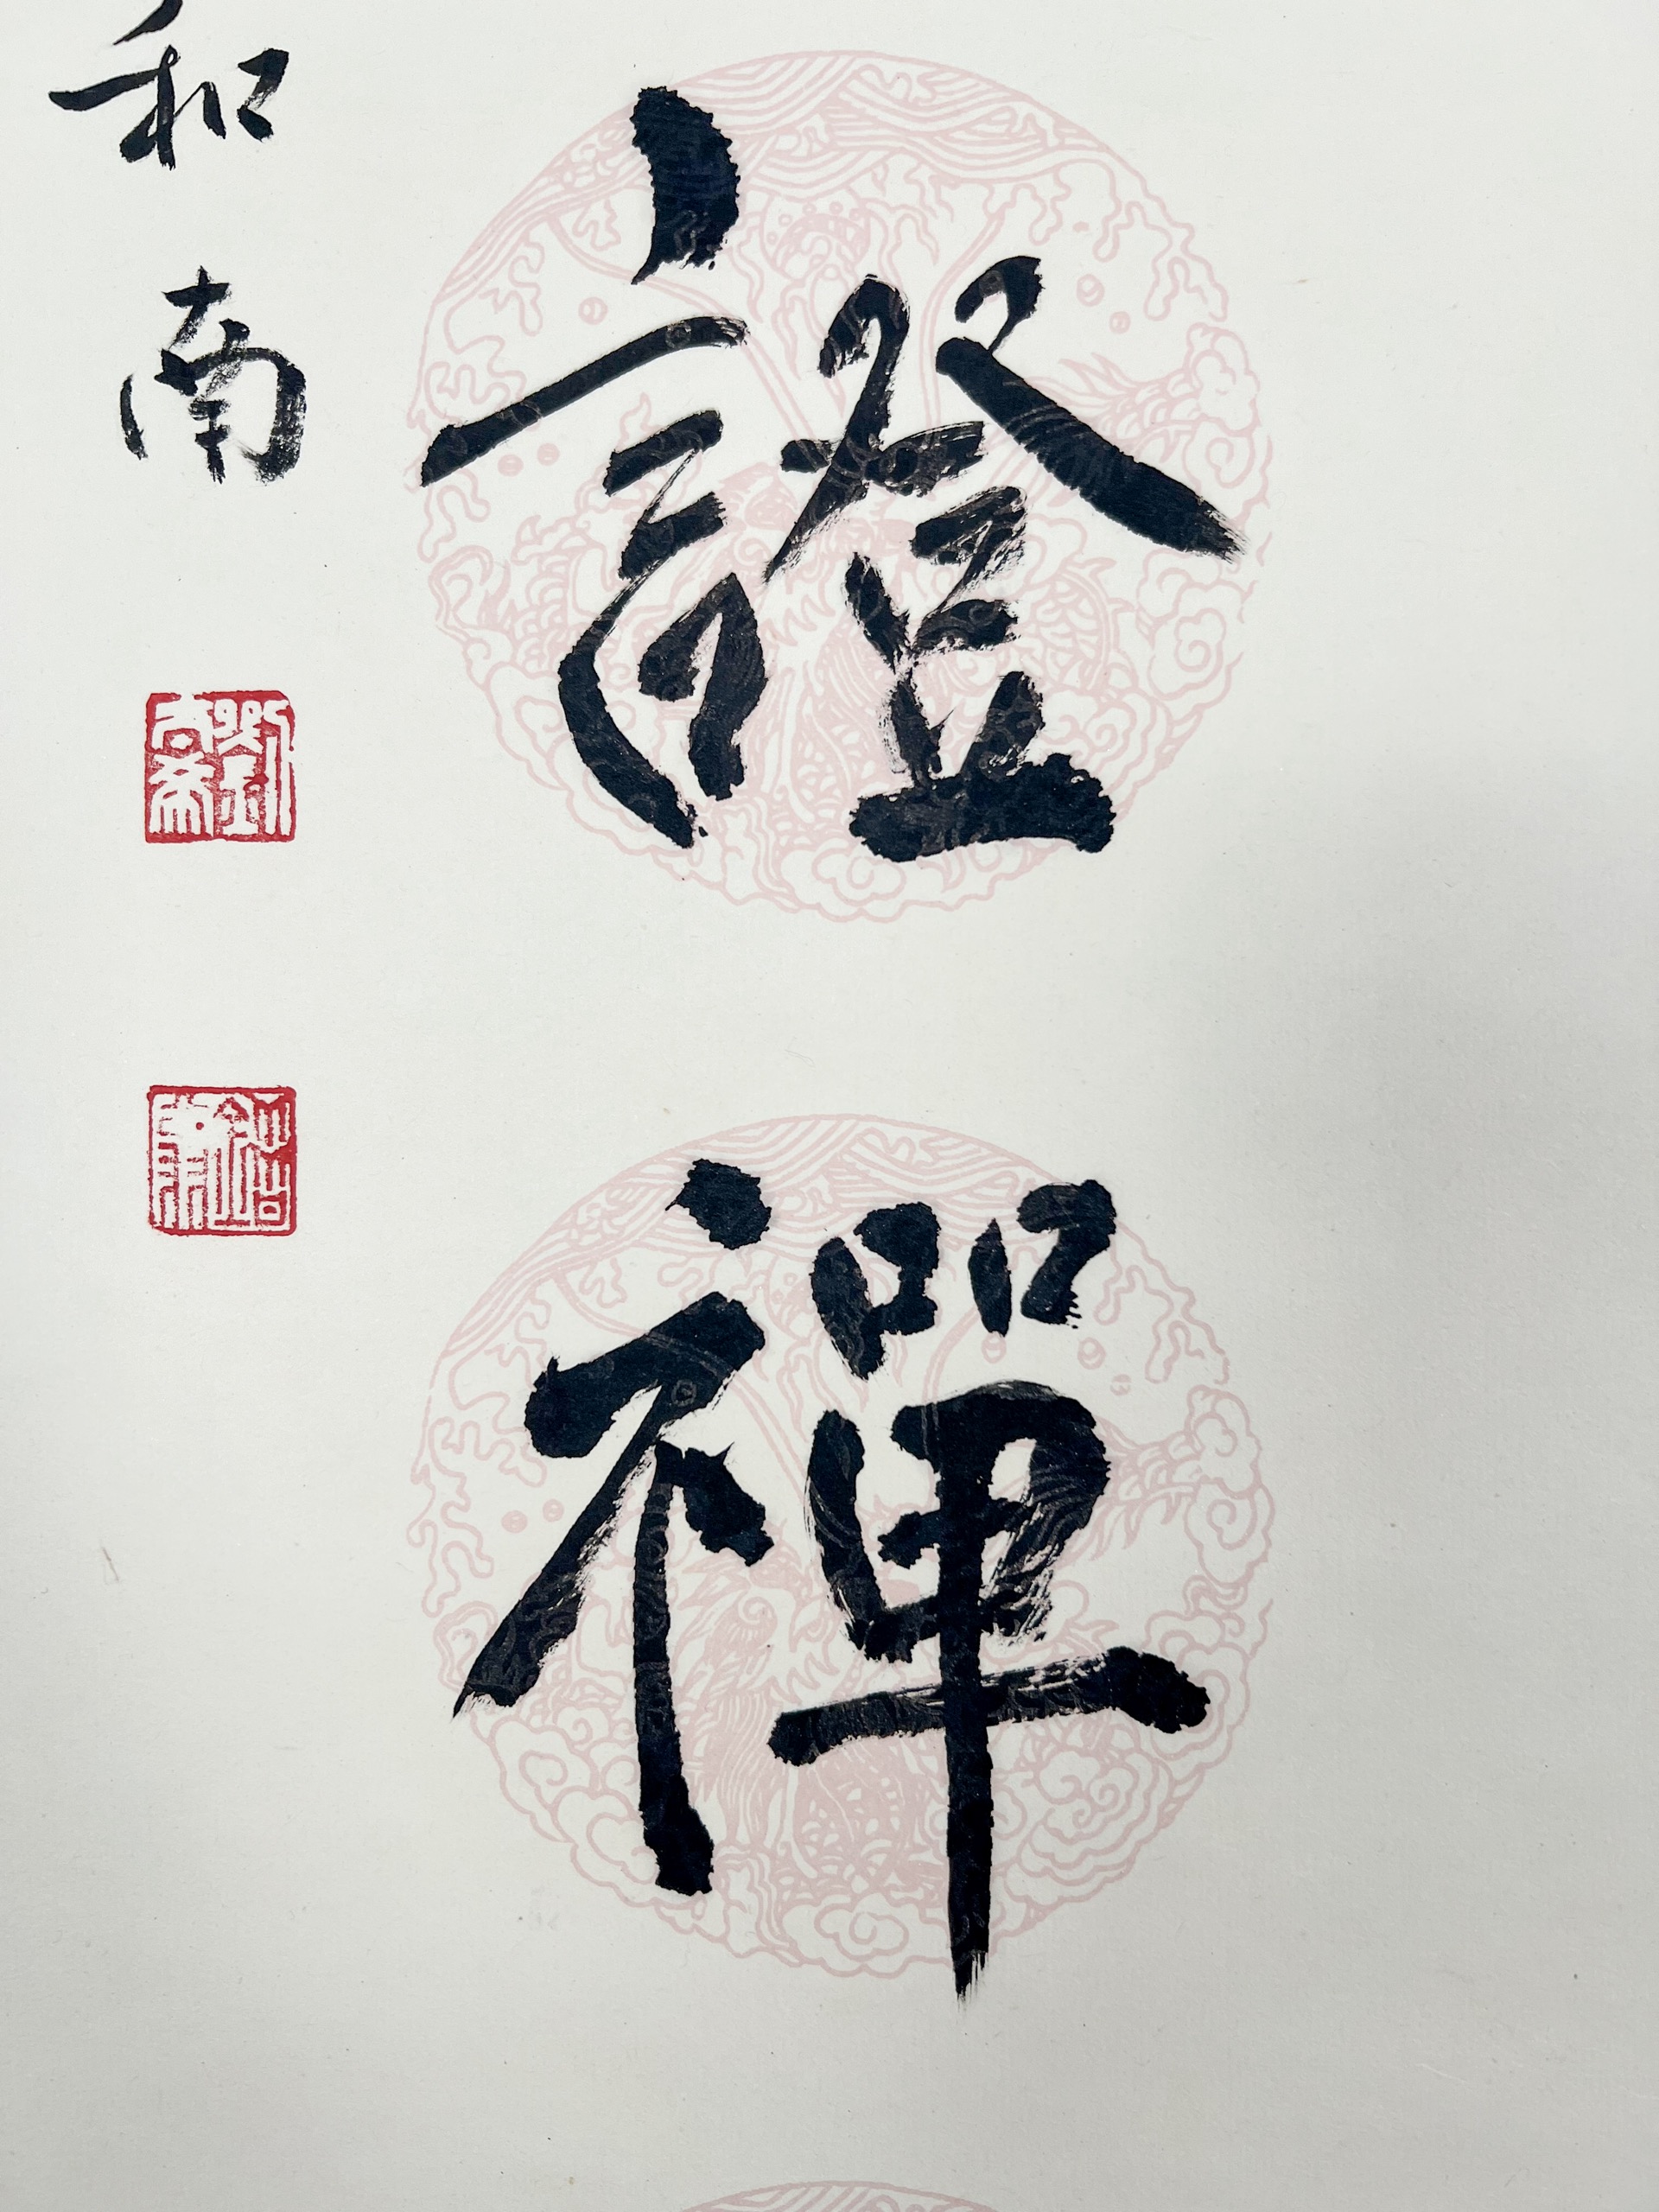 證禪
和南